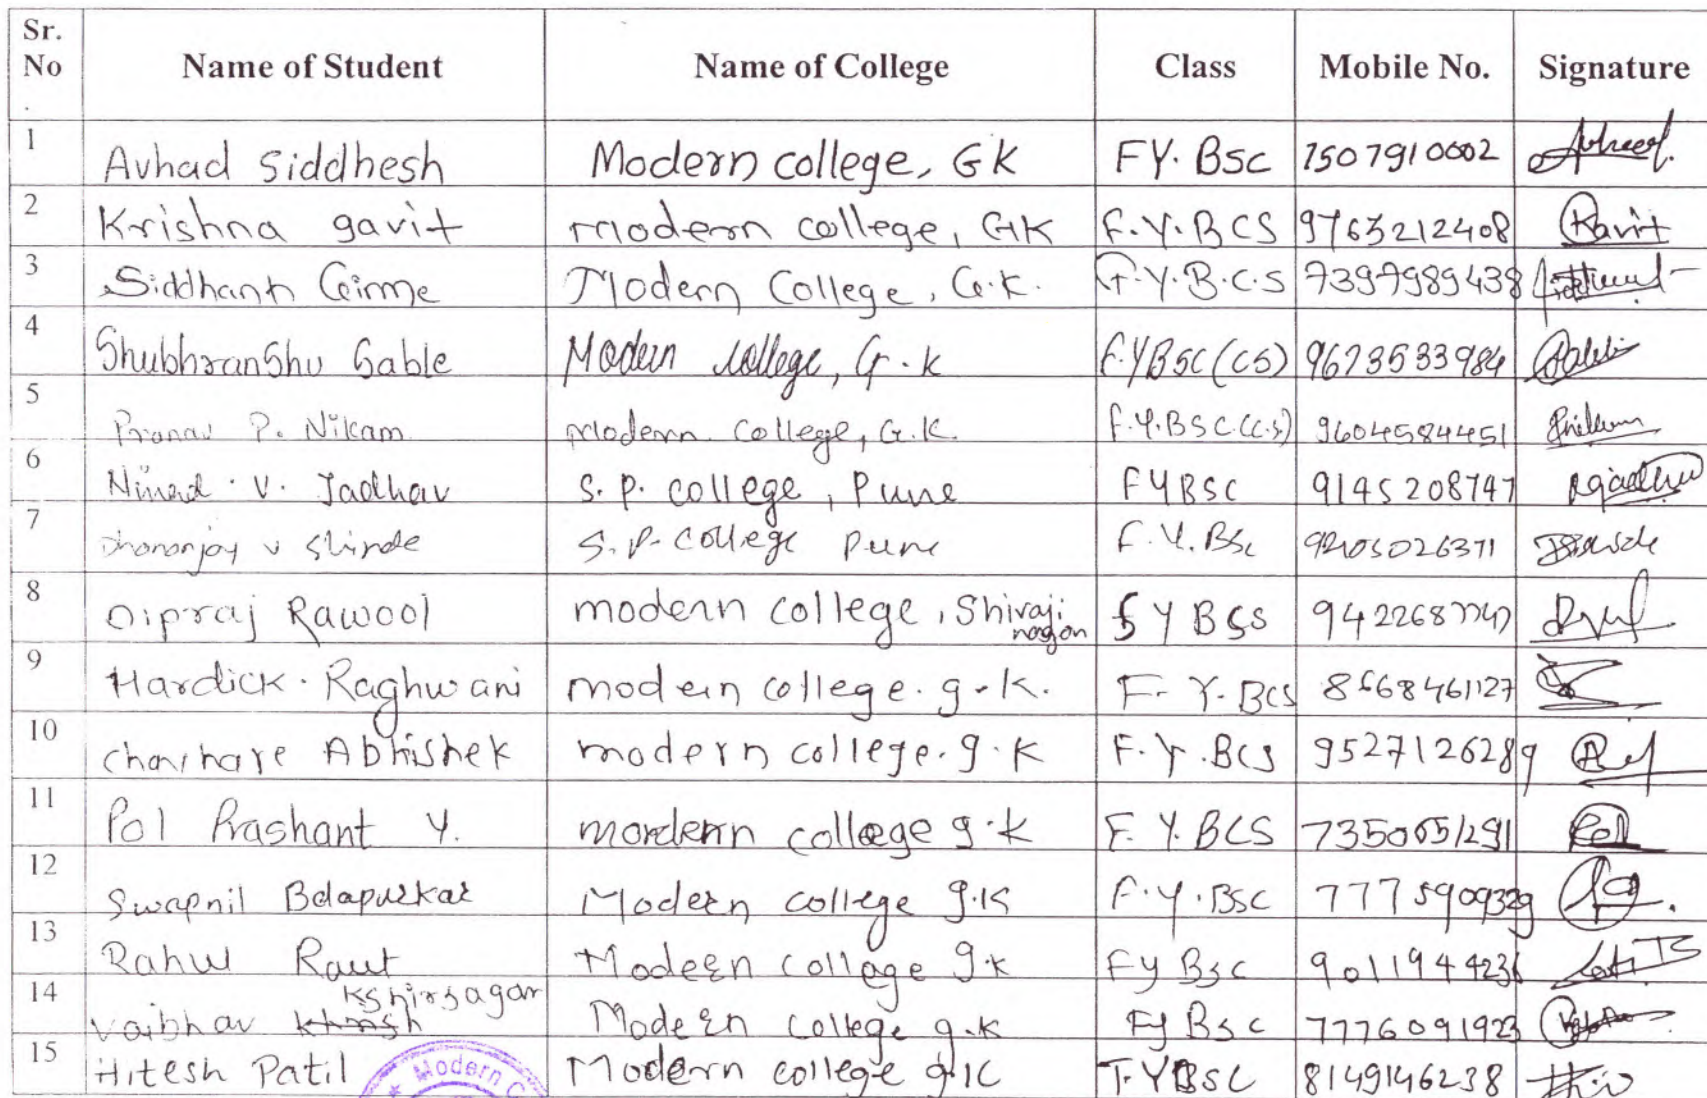 Sr. No. Name of Student Name of College Class Mobile No. Signature
1 Avhad Siddhesh Modern college, GK FY. BSC 7507910002
2 Krishna gavit modern college, GK F.Y.BCS 9763212408 Gavit
3 Siddhant Girme Modern College, G.K. F.Y.B.C.S 7397989438
4 Shubhranshu Sable Modern College, G.K F.YBSC(CS) 9673533984
5 Pranav P. Nikam modern college, G.K. F.Y.BSC.(C.S) 9604584451
6 Ninad V. Jadhav S. P. college, Pune FYBSC 9145208747
7 Dhananjay v Shinde S. P. college Pune F.Y.BSc
8 Dipraj Rawool modern college, Shivaji nagar F Y BCS
9 Hardick. Raghwani modern college. g.K. F.Y.BCS 8668461127
10 Abhishek modern college. g.K F.Y.BCS 9527126289
11 Pol Prashant Y. mordern college g.K F.Y.BCS 7350051291 Pol
12 Swapnil Belapurkar Modern college g.K F.Y.BSC 7775909329
13 Rahul Raut Modern college g.K FY BSC 9011944236
14 Vaibhav Kshirsagar Modern college g.K Fy BSc 7776091923
15 Hitesh Patil Modern college g.K T.YBSC 8149146238
Modern C